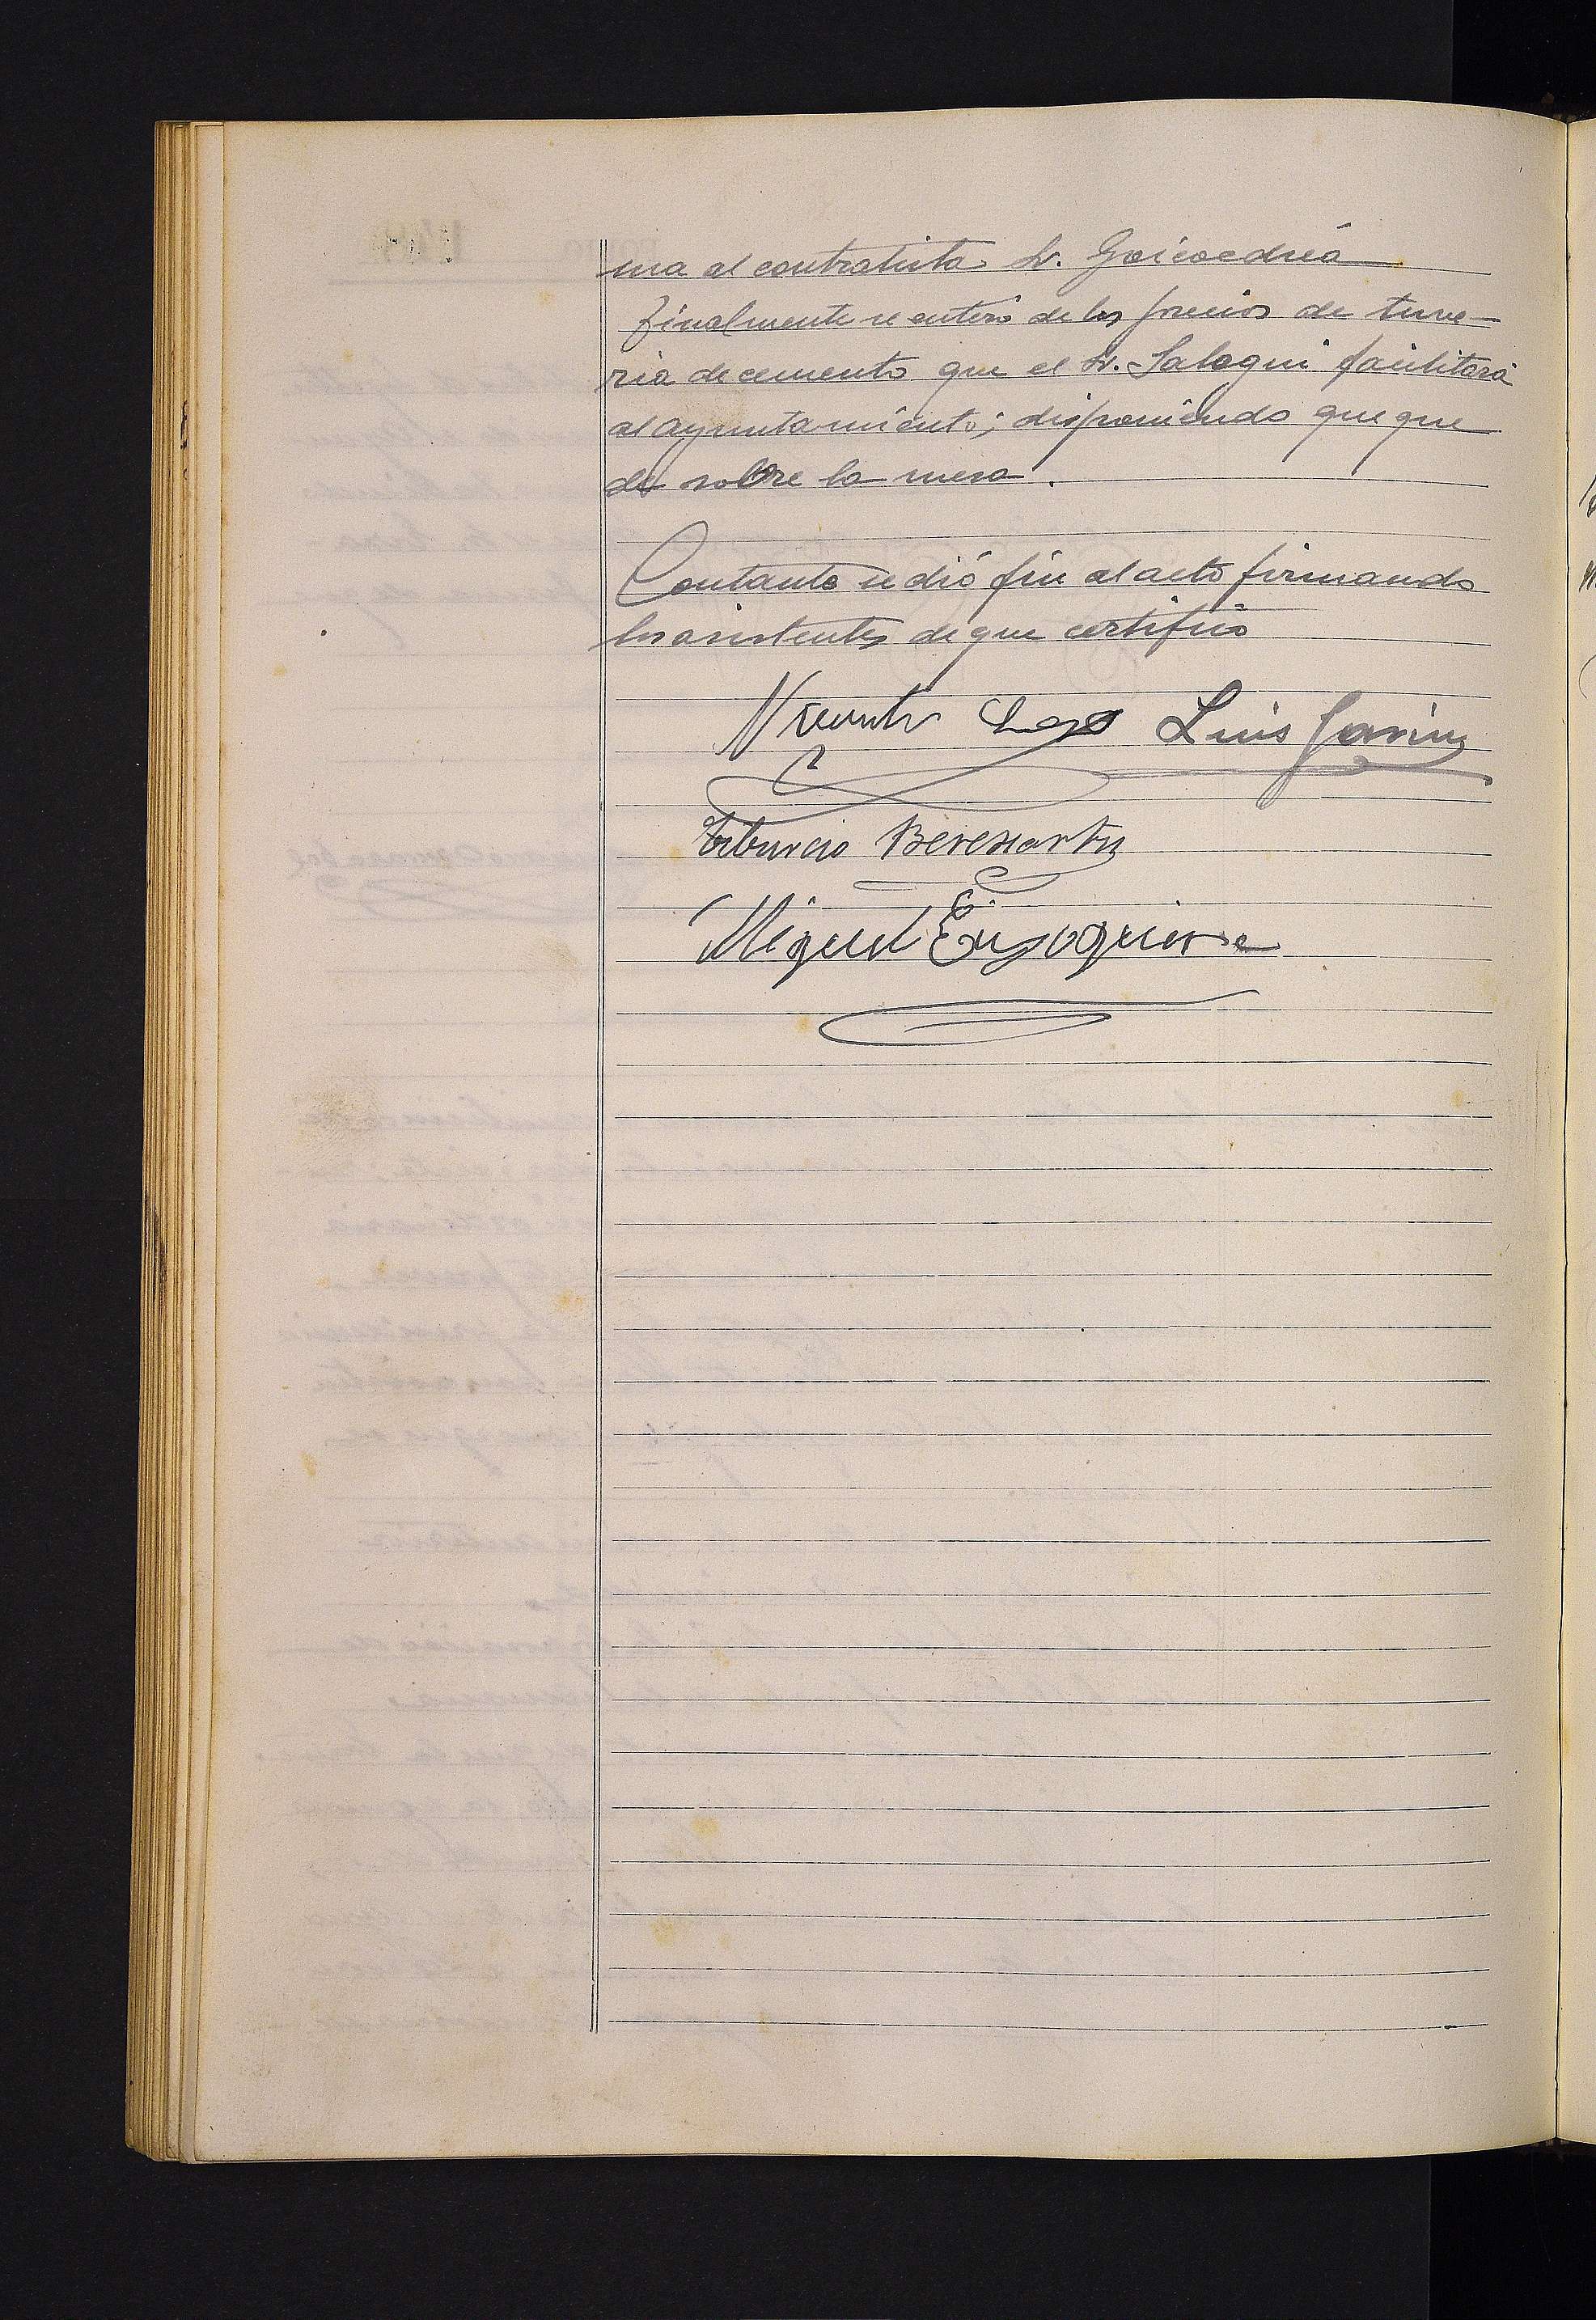 ma al contratista Sr. Goicoechea
Finalmente se enteró de los precios de tuve-
ria de cemento que el Sr. Salegui facilitará
al ayuntamiento; disponiendo que que
de sobre la mesa.
Contanto se dió fin al acto firmando
los asistentes de que certifico
Vicente Luis
Tiburcio Beresiartu
Miguel Eizaguirre